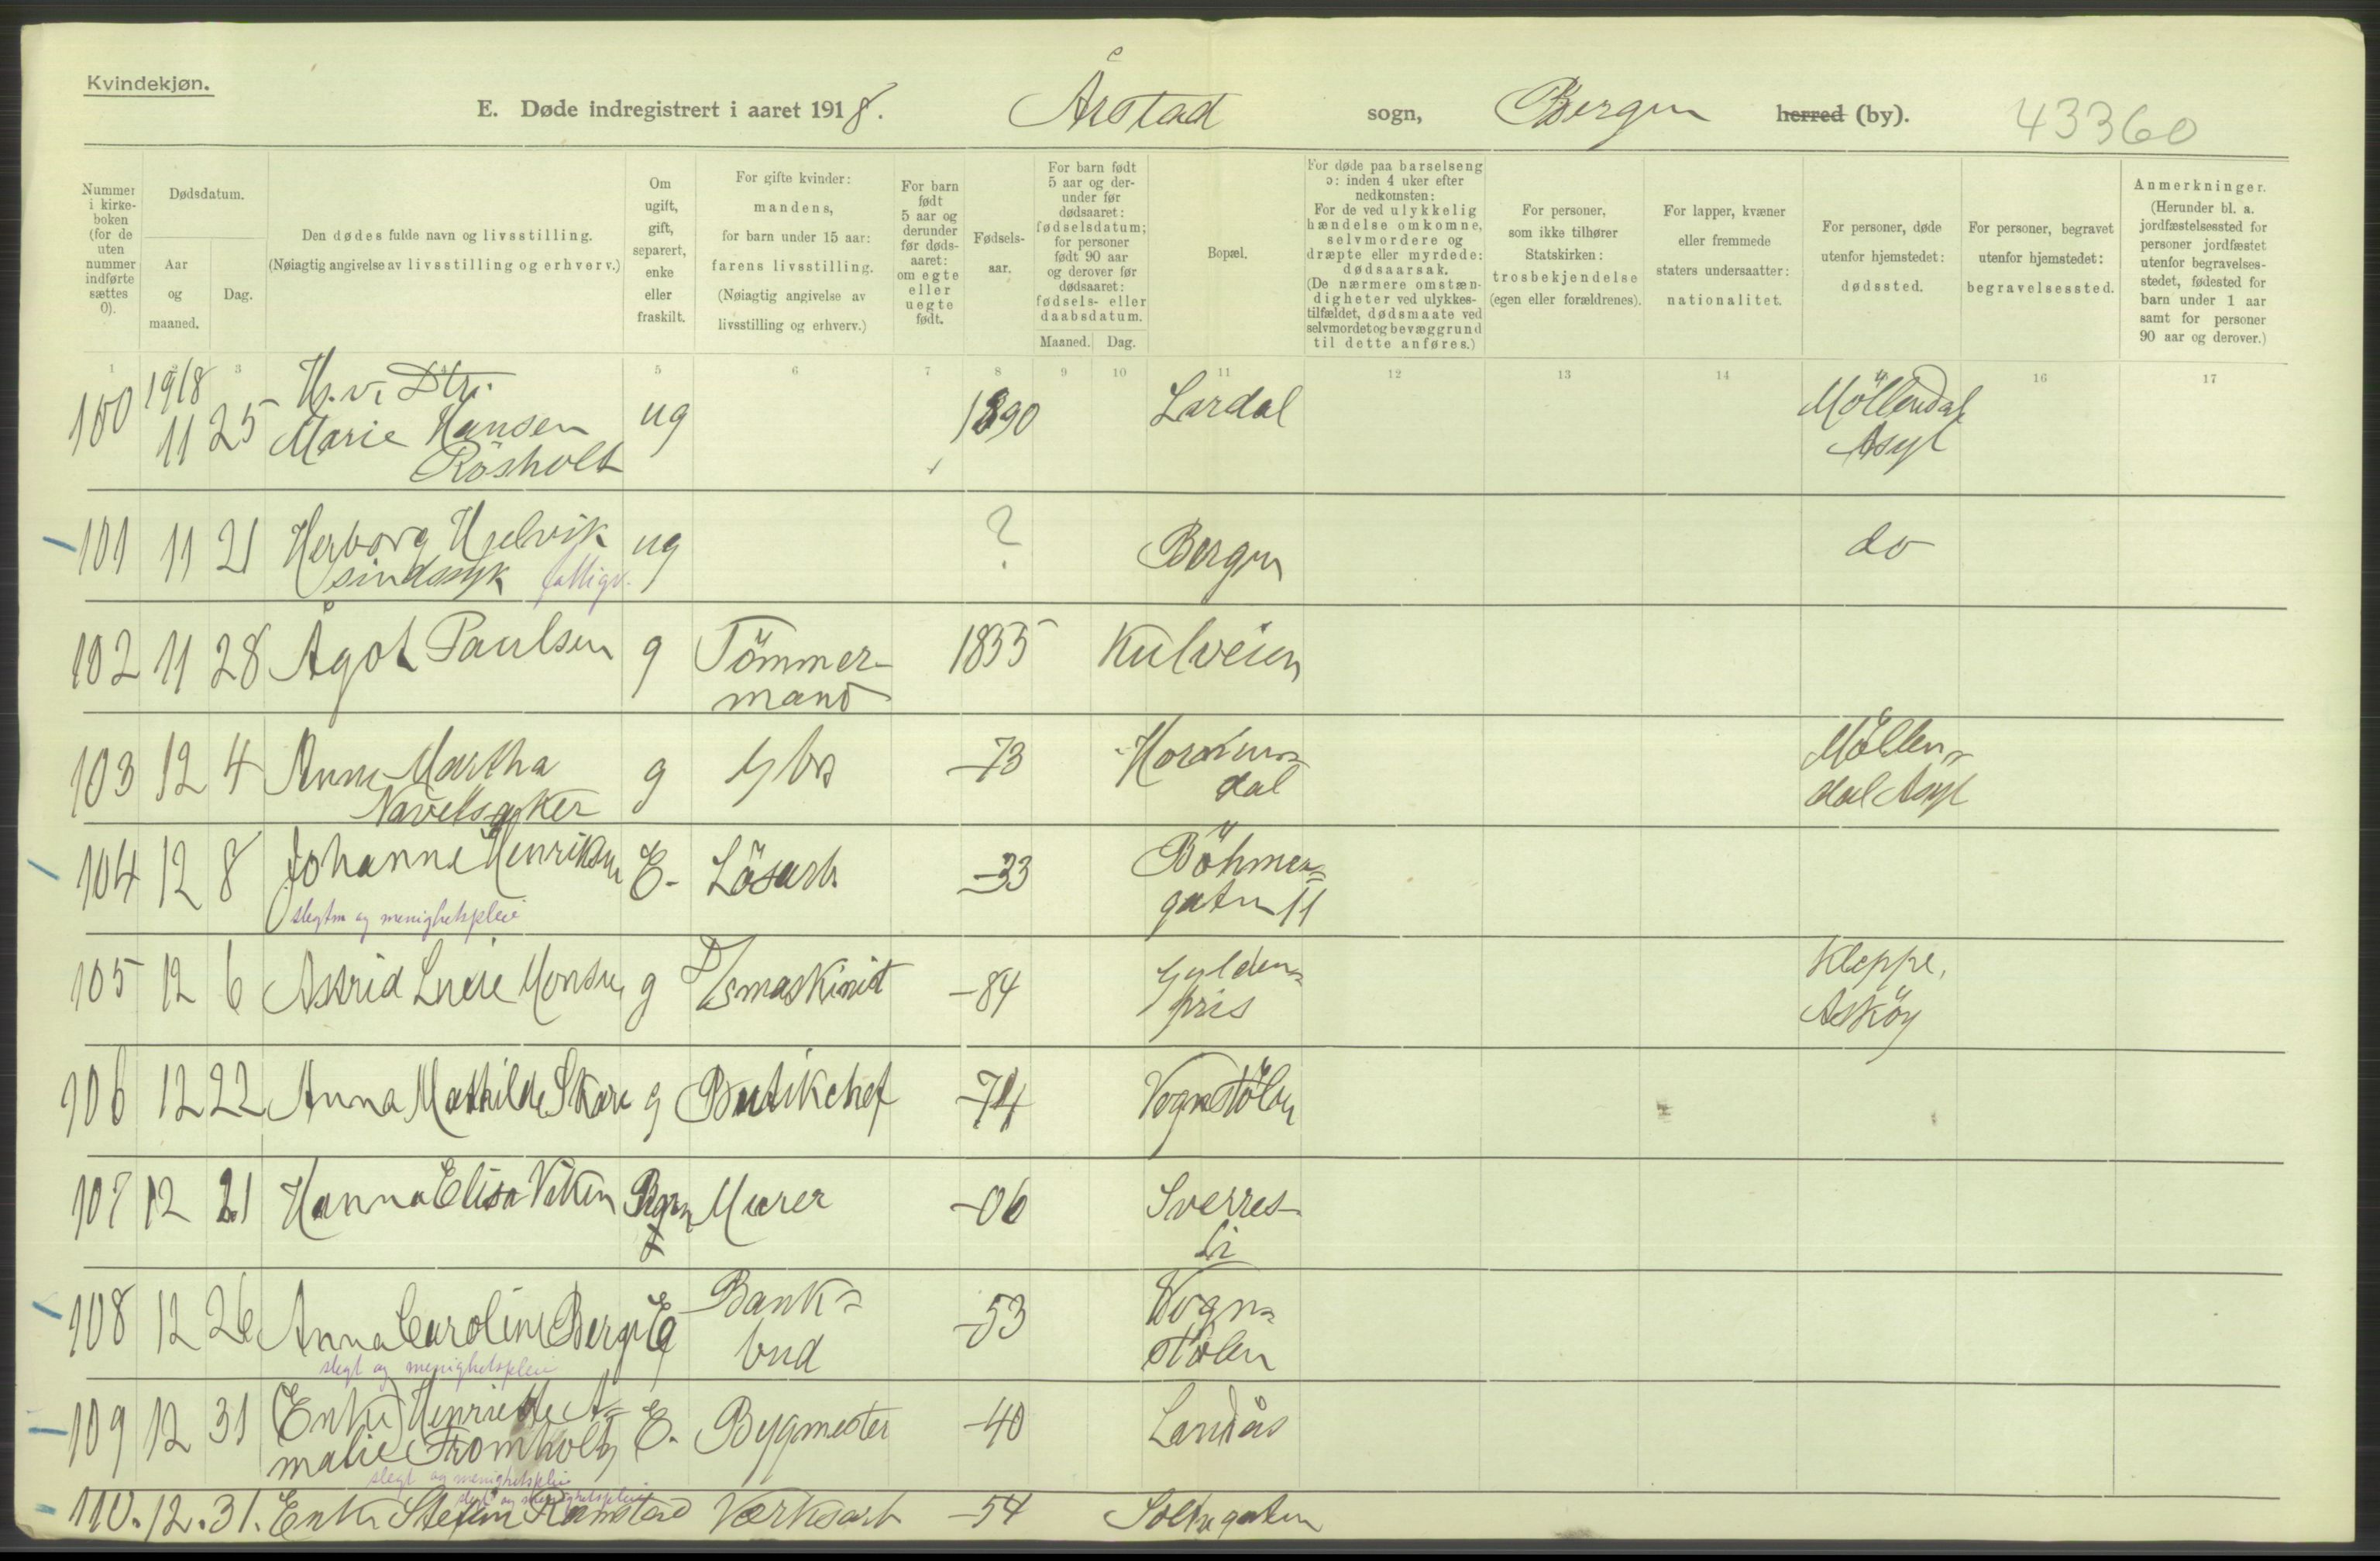 Kvindekjøn.
E. Døde indregistrert i aaret 1918. Årstad sogn, Bergen herred (by). 43360
Nummer i kirke-boken (for de uten nummer indførte sættes 0).
Dødsdatum.
Aar og maaned.
Dag.
Den dødes fulde navn og livsstilling.
(Nøiagtig angivelse av livsstilling og erhverv.)
Om ugift, gift, separert, enke eller fraskilt.
For gifte kvinder: mandens, for barn under 15 aar: farens livsstilling. (Nøiagtig angivelse av livsstilling og erhverv.)
For barn født 5 aar og derunder før døds-aaret: om egte eller uegte født.
Fødsels-aar.
For barn født 5 aar og der-under før dødsaaret: fødselsdatum; for personer født 90 aar og derover før dødsaaret: fødsels- eller daabsdatum.
Maaned. Dag.
Bopæl.
For døde paa barselseng ɔ: inden 4 uker efter nedkomsten: For de ved ulykkelig hændelse omkomne, selvmordere og dræpte eller myrdede: dødsaarsak. (De nærmere omstæn-digheter ved ulykkes-tilfældet, dødsmaate ved selvmordet og bevæggrund til dette anføres.)
For personer, som ikke tilhører Statskirken: trosbekjendelse (egen eller forældrenes).
For lapper, kvæner eller fremmede staters undersaatter: nationalitet.
For personer, døde utenfor hjemstedet: dødssted.
For personer, begravet utenfor hjemstedet: begravelsessted.
Anmerkninger. (Herunder bl. a. jordfæstelsessted for personer jordfæstet utenfor begravelses-stedet, fødested for barn under 1 aar samt for personer 90 aar og derover.)
1 3 5 6 7 8 9 10 11 12 13 14 16 17
1918
100 11 25 H.v. Dtr. Marie Hansen Rösholt ug 1890 Lardal Möllendal Asyl
101 11 21 Herborg Hjelvik sindssyk fattigv. ug ? Bergen do
102 11 28 Ågot Paulsen g Tömmer-mand 1835 Kulveien
103 12 4 Anne Martha Navelsaker g Gbr -73 Hornin-dal Möllen-dal Asyl
104 12 8 Johanne Henriksen E. Lösarb. -33 Böhmer-gaten 11
slegtn og menighetspleie
105 12 6 Astrid Lucie Monsen g D/Smaskinist -84 Gylden-pris Kleppe, Asköy
106 12 22 Anna Mathilde Skare g Butikchef -74 Vognstölen
107 12 21 Hanna Elisa Viken Barn Murer -06 Sverres-li
108 12 26 Anna Caroline Berge Eg Bank-bud -53 Vogn-stölen
slegt og menighetspleie
109 12 31 (Enke) Henriette A-malie Fromholtz E. Bygmester -40 Landås
slegt og menighetspleie
slegt og menighetspleie
110. 12. 31. Enke Stefine Ramstad Værksarb -54 Solhegaten